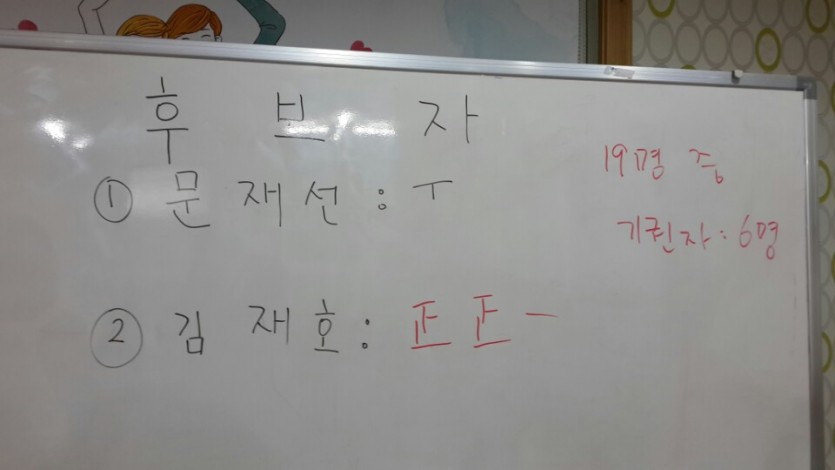 후 브 자
19명 중
① 문재선 : ㅜ
기권자 : 6명
② 김재호 : 正 正 一